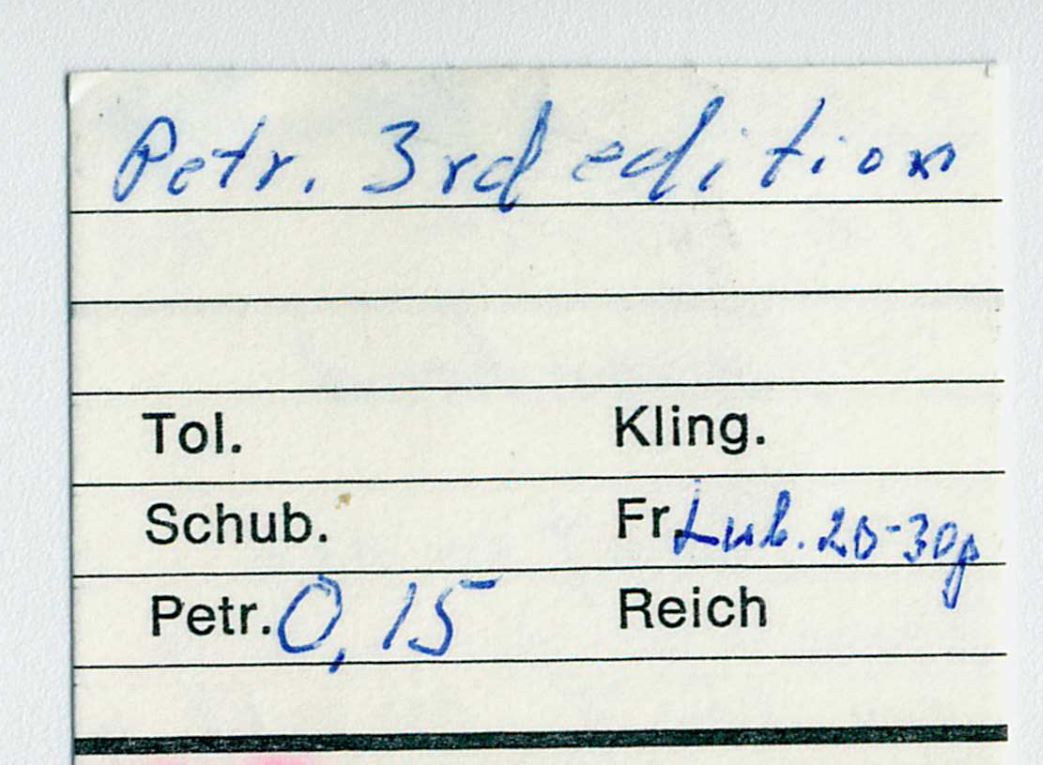 Petr. 3rd edition
Tol. Kling.
Schub. Fr. Lub. 20-30p
Petr. 0,15 Reich